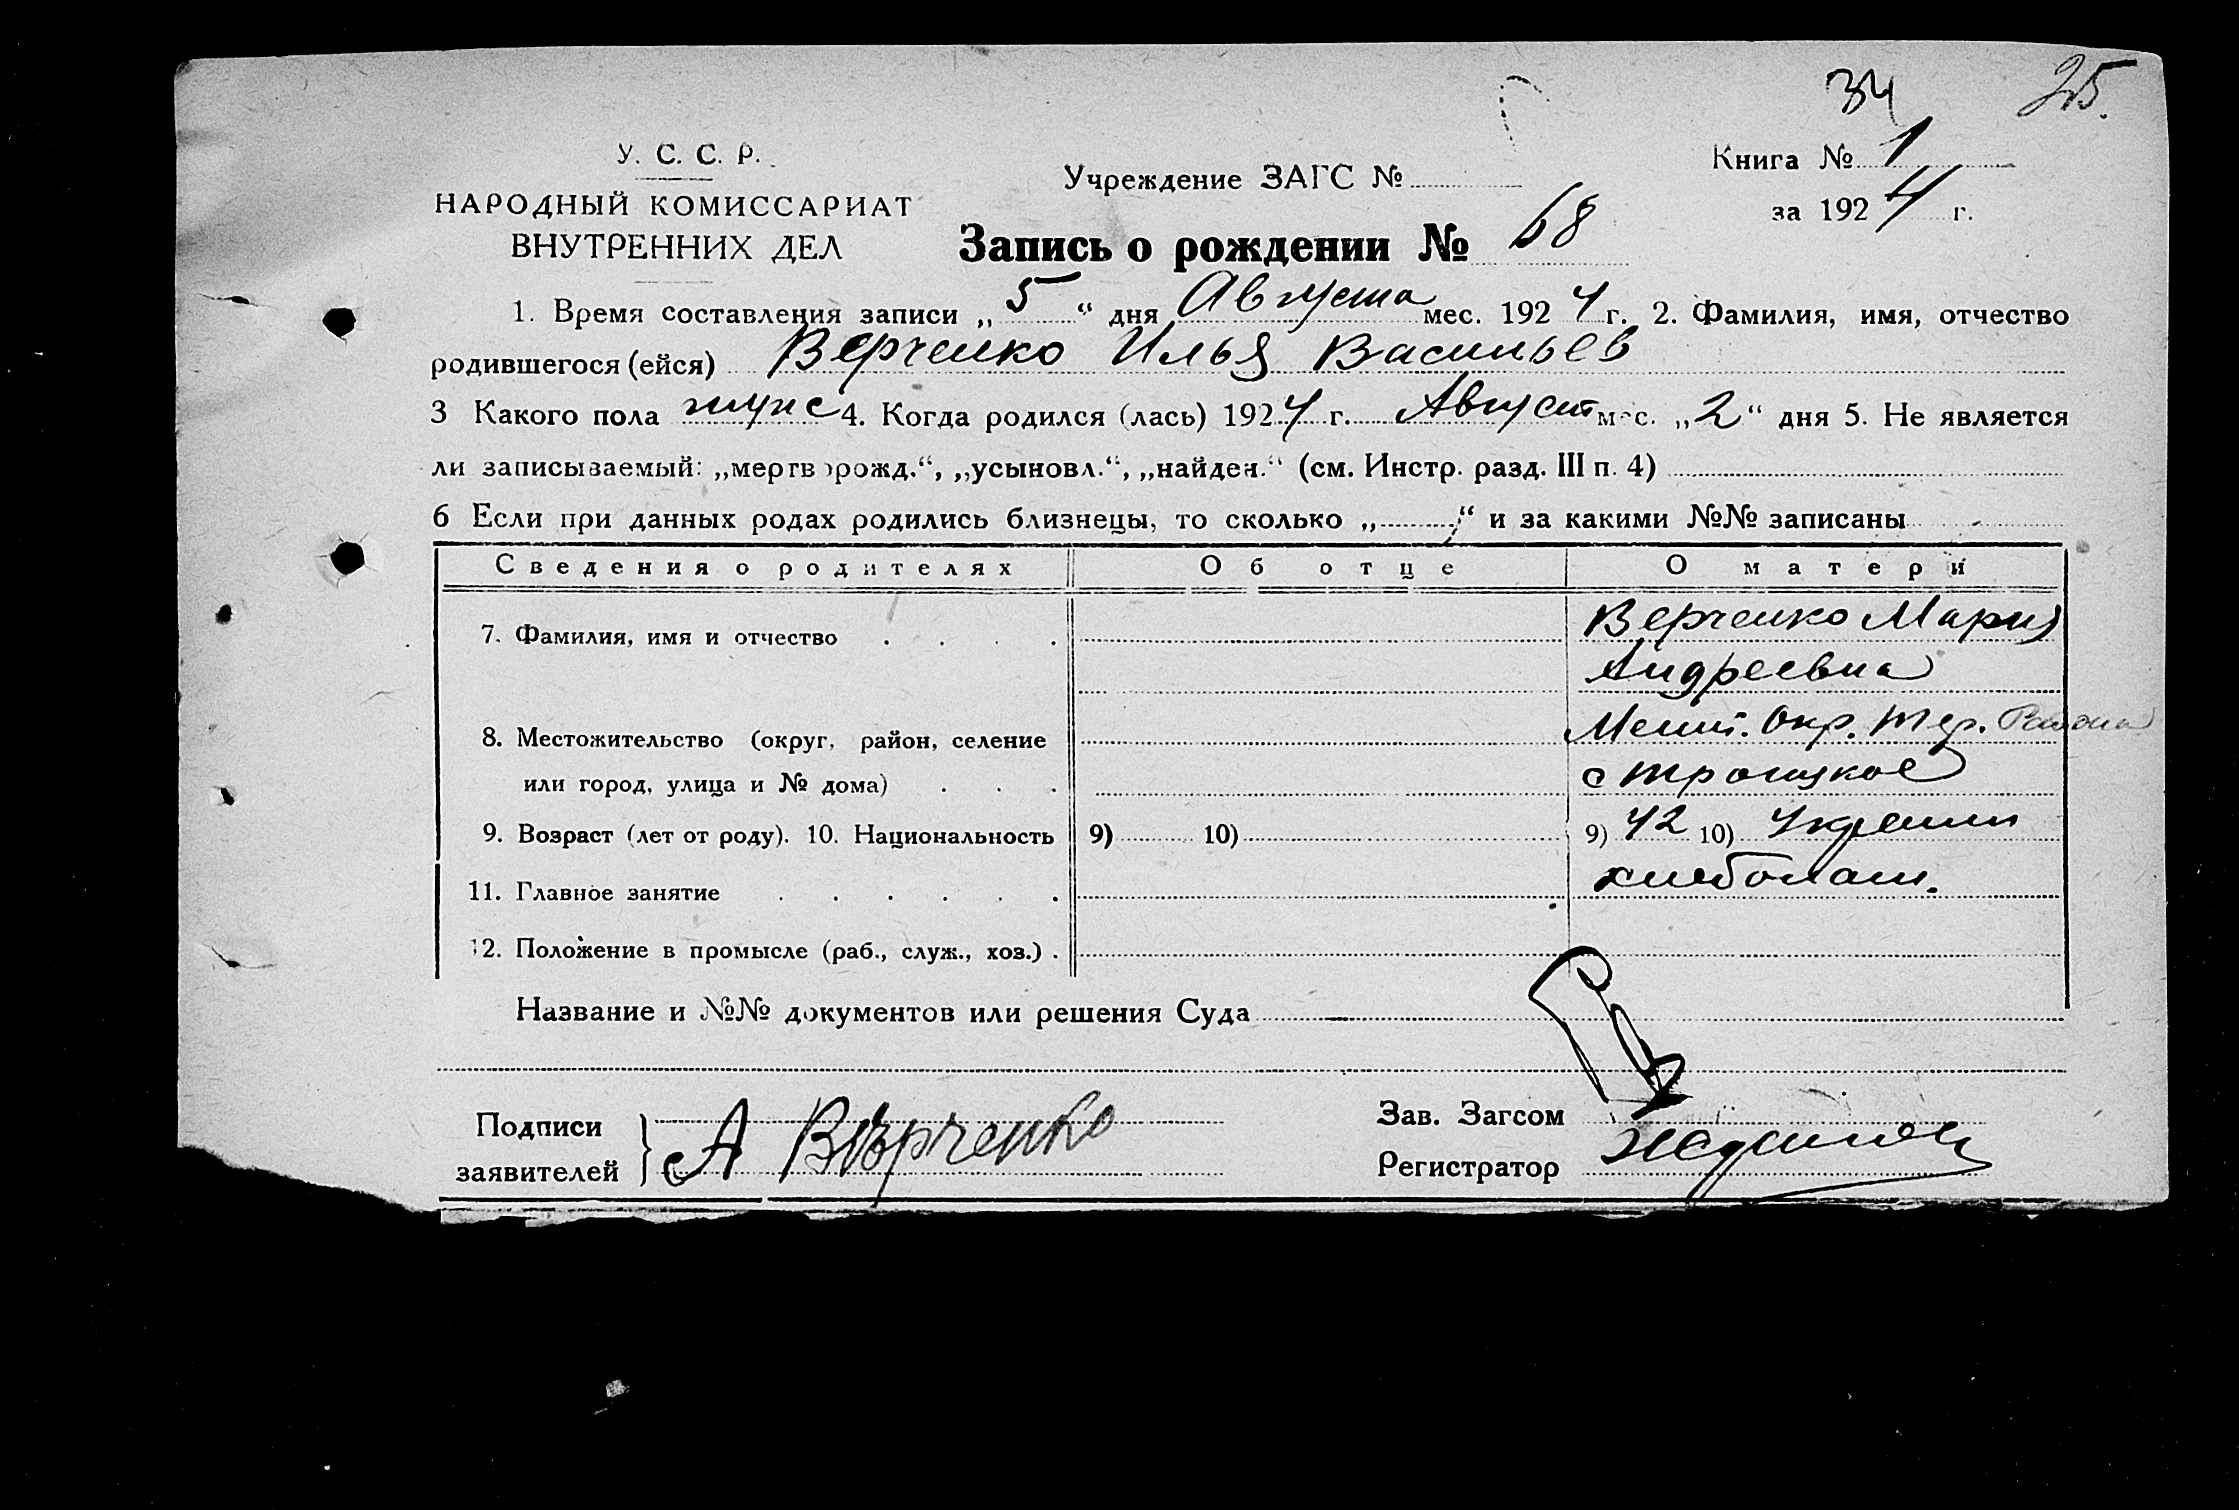 34 25.
У. С. С. Р.
НАРОДНЫЙ КОМИССАРИАТ
ВНУТРЕННИХ ДЕЛ
Учреждение ЗАГС №
Книга № 1
за 1924 г.
Запись о рождении № 68
1. Время составления записи „5“ дня Августа мес. 1924 г. 2. Фамилия, имя, отчество
родившегося (ейся) Верченко Илья Васильев
3 Какого пола мужс 4. Когда родился (лась) 1924 г. Август мес. „2“ дня 5. Не является
ли записываемый: „мертворожд.“, „усыновл.“, „найден.“ (см. Инстр. разд. III п. 4)
6 Если при данных родах родились близнецы, то сколько „ “ и за какими №№ записаны
Сведения о родителях Об отце О матери
7. Фамилия, имя и отчество . . . . Верченко Мария
Андреевна
8. Местожительство (округ, район, селение Мелит. Окр. Тер. Района
или город, улица и № дома) . . . с Троицкое
9. Возраст (лет от роду). 10. Национальность 9) 10) 9) 42 10) Украин
11. Главное занятие . . . . . . хлебопаш.
12. Положение в промысле (раб., служ., хоз.) .
Название и №№ документов или решения Суда
Подписи
заявителей
А Верченко
Зав. Загсом
Регистратор